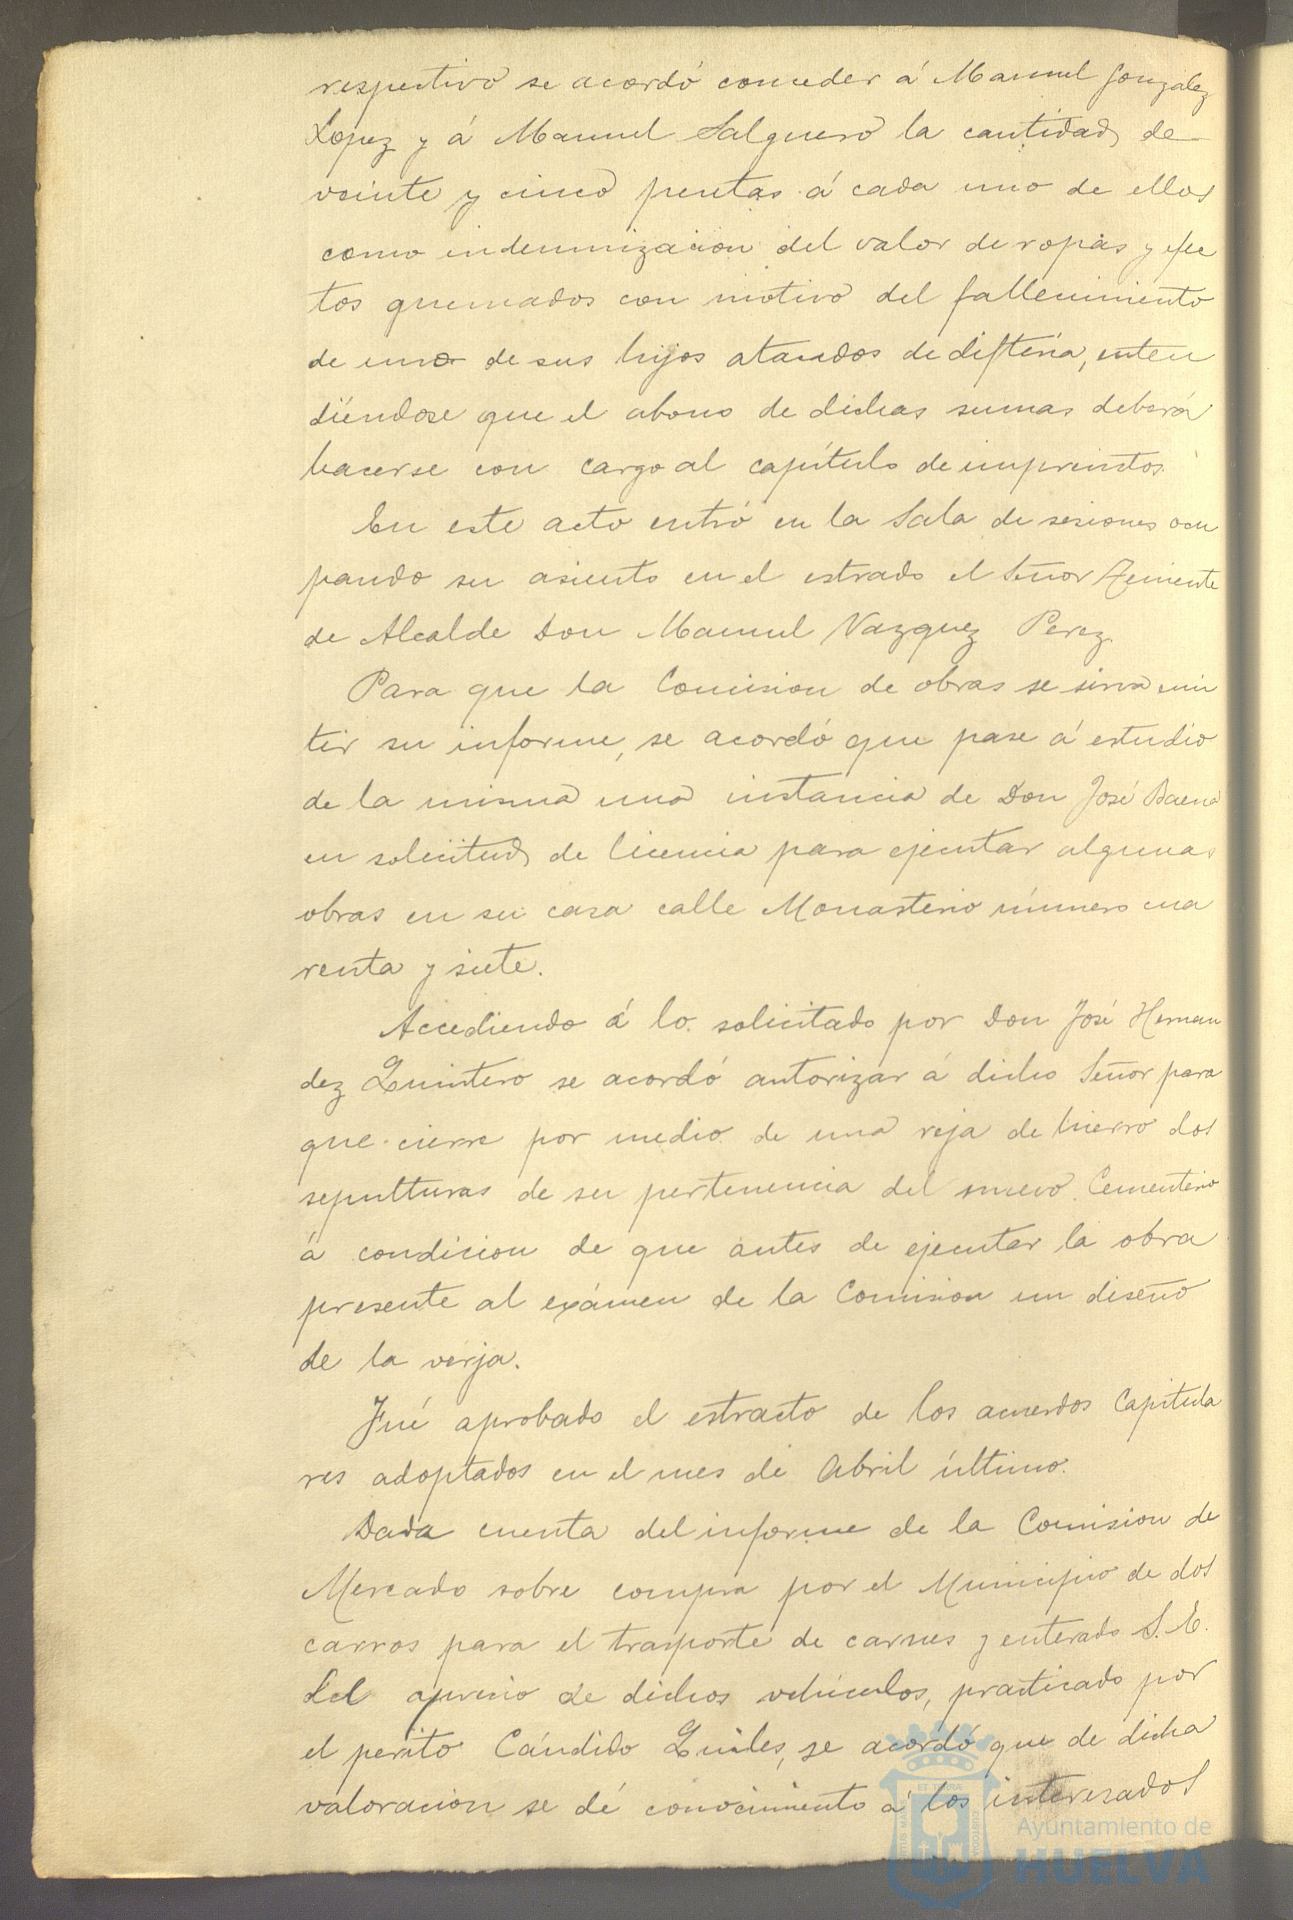 respectivo se acordó conceder á Manuel Gonzalez
Lopez y á Manuel Salguero la cantidad de
veinte y cinco pesetas á cada uno de ellos
como indemnizacion del valor de ropas y efec
tos quemados con motivo del fallecimiento
de uno de sus hijos atacados de difteria, enten
diéndose que el abono de dichas sumas deberá
hacerse con cargo al capítulo de imprevistos.
En este acto entró en la Sala de sesiones ocu
pando su asiento en el estrado el Señor Teniente
de Alcalde Don Manuel Vazquez Perez.
Para que la Comision de obras se sirva emi
tir su informe, se acordó que pase á estudio
de la misma una instancia de Don José Baena
en solicitud de licencia para ejecutar algunas
obras en su casa calle Monasterio número cua
renta y siete.
Accediendo á lo solicitado por Don José Hernan
dez Quintero se acordó autorizar á dicho Señor para
que cierre por medio de una reja de hierro dos
sepulturas de su pertenencia del nuevo Cementerio
á condicion de que antes de ejecutar la obra
presente al exámen de la Comision un diseño
de la verja.
Fué aprobado el estracto de los acuerdos Capitula
res adoptados en el mes de Abril último.
Dada cuenta del informe de la Comision de
Mercado sobre compra por el Municipio de dos
carros para el trasporte de carnes y enterado S. E.
del aprecio de dichos vehículos, practicado por
el perito Cándido Quiles, se acordó que de dicha
valoracion se dé conocimiento á los interesados
Ayuntamiento de
HUELVA